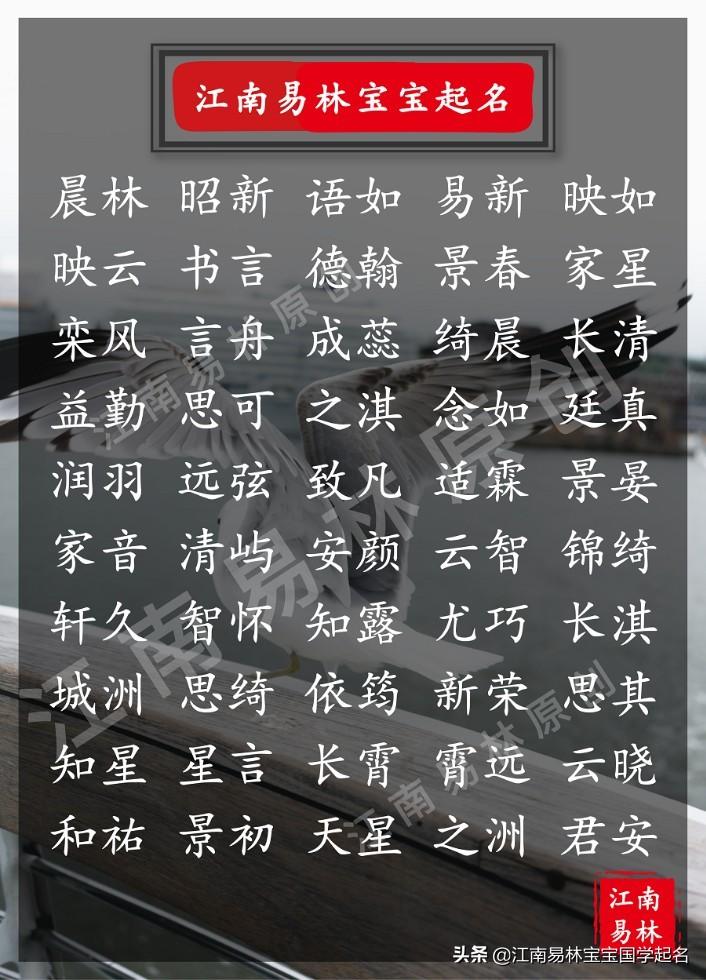 江南易林宝宝起名
晨林 昭新 语如 易新 映如
映云 书言 德翰 景春 家星
栾风 言舟 成蕊 绮晨 长清
益勤 思可 之淇 念如 廷真
润羽 远弦 致凡 适霖 景晏
家音 清屿 安颜 云智 锦绮
轩久 智怀 知露 尤巧 长淇
城洲 思绮 依筠 新荣 思其
知星 星言 长霄 霄远 云晓
和祐 景初 天星 之洲 君安
江南易林原创
江南易林原创
江南易林原创
江南
易林
头条 @江南易林宝宝国学起名